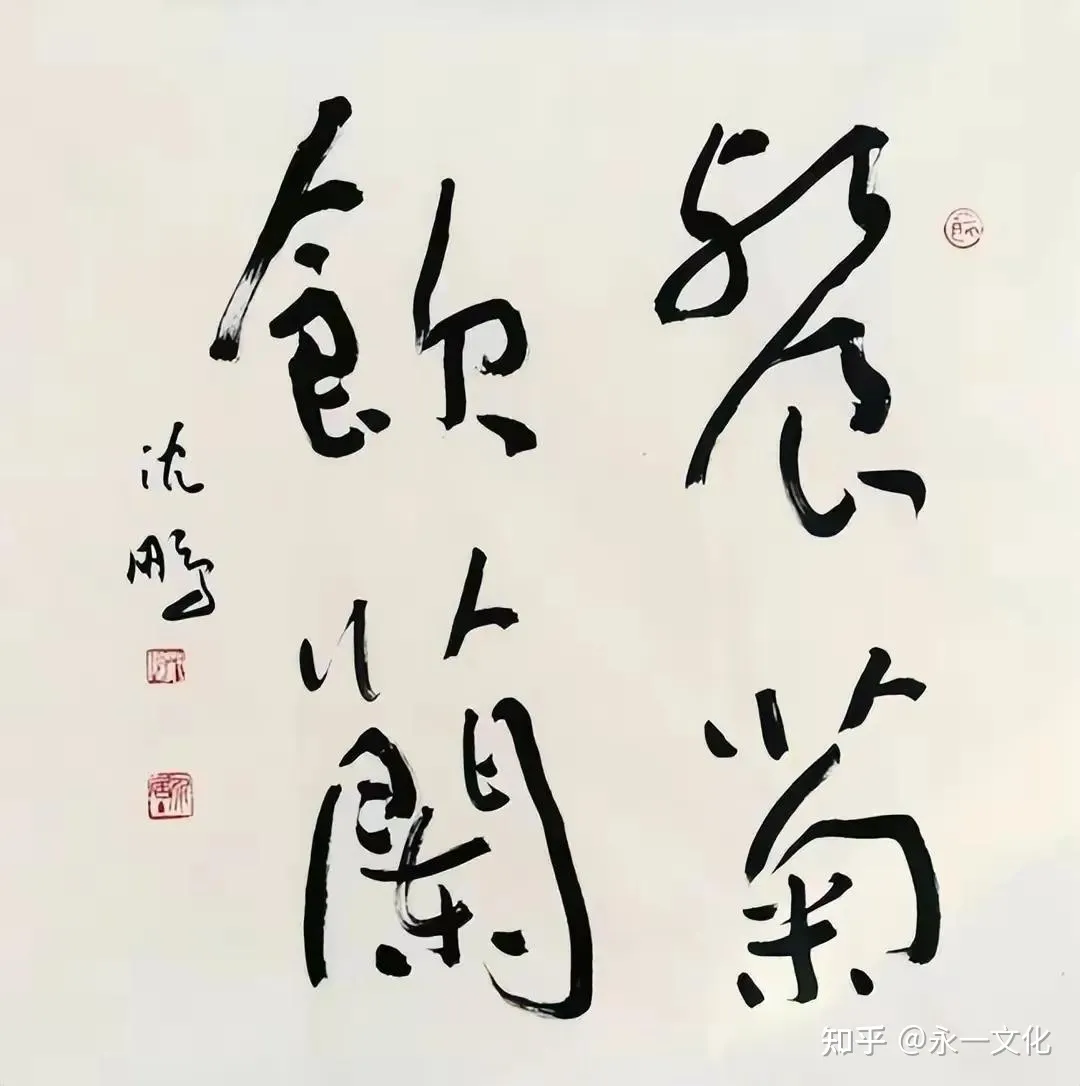 餐菊
飲蘭
沈鵬
知乎 @永一文化